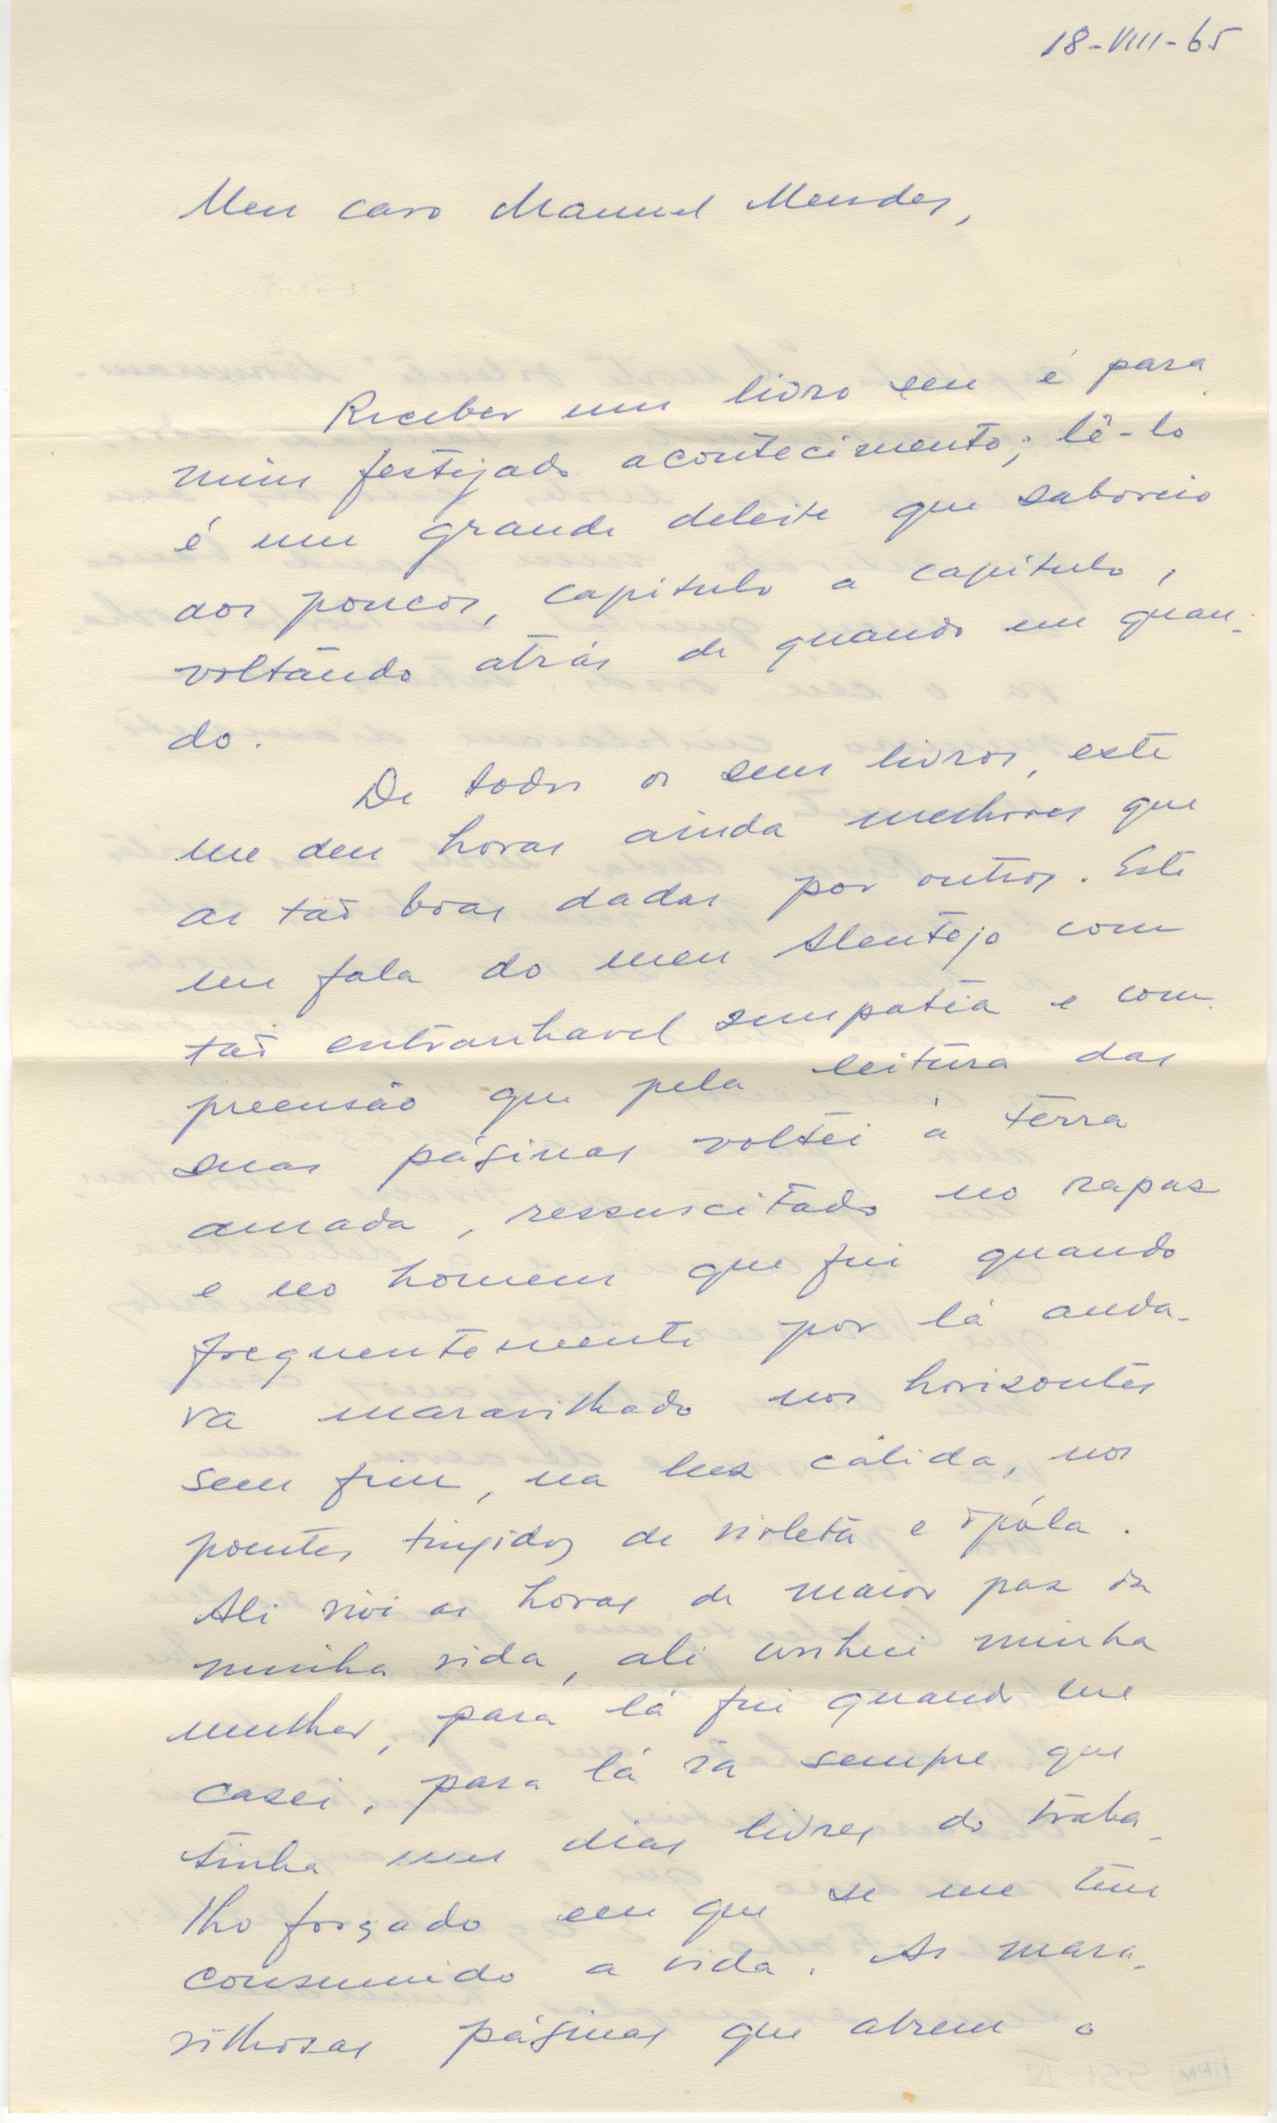 18-VIII-65
Meu caro Manuel Mendes,
Receber um livro seu é para
mim festejado acontecimento; lê-lo
é um grande deleite que saboreio
aos poucos, capítulo a capítulo,
voltando atrás de quando em quan-
do.
De todos os seus livros, este
me deu horas ainda melhores que
as tão boas dadas por outros. Este
me fala do meu Alentejo com
tão entranhavel simpatia e com-
preensão que pela leitura das
suas páginas voltei à terra
amada, ressuscitado no rapaz
e no homem que fui quando
frequentemente por lá anda-
va maravilhado nos horizontes
sem fim, na luz cálida, nos
poentes tingidos de violeta e opála.
Ali vivi as horas de maior paz da
minha vida, ali conheci minha
mulher, para lá fui quando me
casei, para lá ia sempre que
tinha uns dias livres do traba-
lho forçado em que se me tem
consumido a vida. As mara-
vilhosas páginas que abrem o